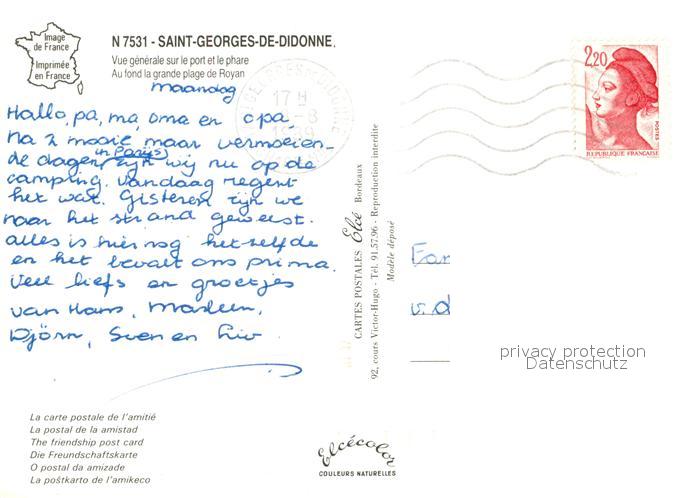 Image
de France
Imprimée
en France
N 7531 - SAINT-GEORGES-DE-DIDONNE.
Vue générale sur le port et le phare
Au fond la grande plage de Royan
maandag
Hallo, pa, ma, oma en opa,
Na 2 mooie maar vermoeien-
de dagen in Parijs zijn wij nu op de
camping. Vandaag regent
het wat. Gisteren zijn we
naar het strand geweest.
alles is hier nog hetzelfde
en het bevalt ons prima.
Veel liefs en groetjes
van Hans, Marleen,
Djörn, Sven en Liv
La carte postale de l'amitié
La postal de la amistad
The friendship post card
Die Freundschaftskarte
O postal da amizade
La poŝtkarto de l'amikeco
17 H
-8
1989
2,20
POSTES
REPUBLIQUE FRANÇAISE
CARTES POSTALES Elcé Bordeaux
92, cours Victor-Hugo - Tél. 91.57.96 - Reproduction interdite
Modèle déposé
Fam
v. d
privacy protection
Datenschutz
Elcécolor
COULEURS NATURELLES